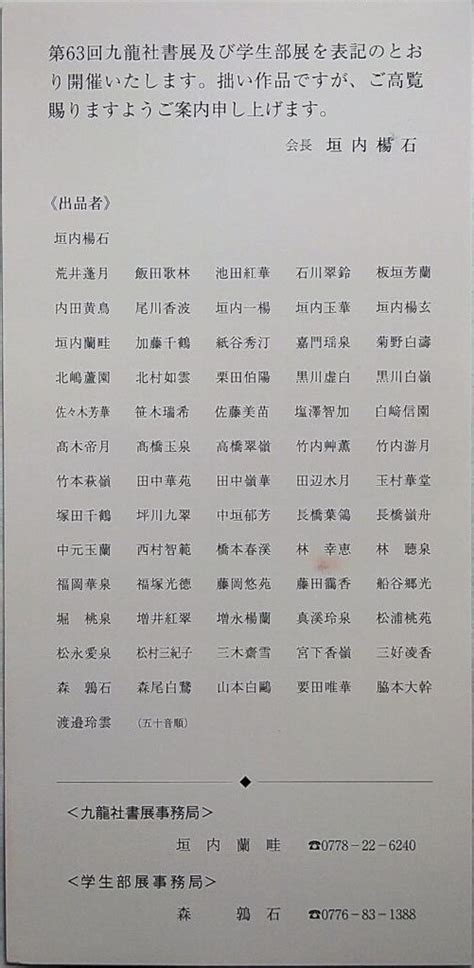 第63回九龍社書展及び学生部展を表記のとお
り開催いたします。拙い作品ですが、ご高覧
賜りますようご案内申し上げます。
会長 垣内楊石
《出品者》
垣内楊石
荒井蓬月 飯田歌林 池田紅華 石川翠鈴 板垣芳蘭
内田黄鳥 尾川香波 垣内一楊 垣内玉華 垣内楊玄
垣内蘭畦 加藤千鶴 紙谷秀汀 嘉門瑶泉 菊野白濤
北嶋蘆園 北村如雲 栗田伯陽 黒川虚白 黒川白嶺
佐々木芳華 笹木瑞希 佐藤美苗 塩澤智加 白﨑信園
髙木帝月 髙橋玉泉 高橋翠嶺 竹内艸薫 竹内游月
竹本萩嶺 田中華苑 田中嶺華 田辺水月 玉村華堂
塚田千鶴 坪川九翠 中垣郁芳 長橋葉鴒 長橋嶺舟
中元玉蘭 西村智範 橋本春溪 林 幸恵 林 聴泉
福岡華泉 福塚光徳 藤岡悠苑 藤田靄香 船谷郷光
堀 桃泉 増井紅翠 増永楊蘭 真溪玲泉 松浦桃苑
松永愛泉 松村三紀子 三木齋雪 宮下香嶺 三好凌香
森 鶉石 森尾白鷺 山本白鷗 要田唯華 脇本大幹
渡邉玲雲 (五十音順)
＜九龍社書展事務局＞
垣内蘭畦 ☎0778－22－6240
＜学生部展事務局＞
森 鶉石 ☎0776－83－1388